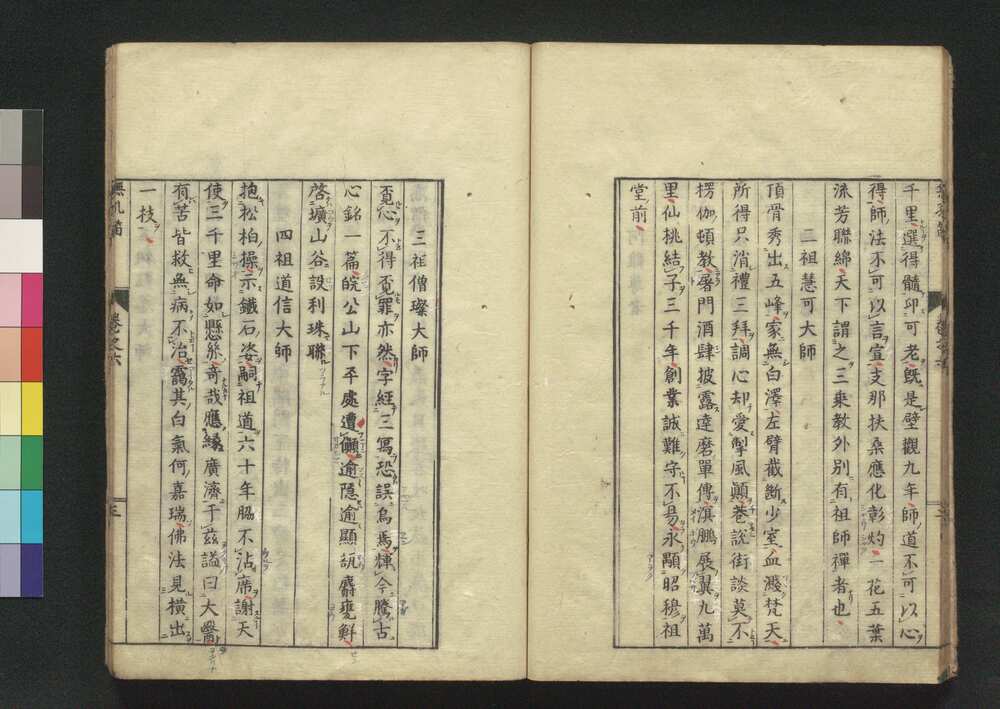 千里選得髓印可老既是壁觀九年師道不可以心
得師法不可以言宣支那扶桑應化彰灼一花五葉
流芳聯綿天下謂之三乘教外別有祖師禪者也
二祖慧可大師
頂骨秀出五峰家無白澤左臂截斷少室血濺梵天
所得只消禮三拜調心却愛掣風顛巷說街談莫不
楞伽頓教屠門酒肆披露達磨單傳溟鵬展翼九萬
里仙桃結子三千年創業誠難守不易永顯昭穆祖
堂前
三祖僧璨大師
覓心不得覓罪亦然字經三寫恐誤烏焉輝今騰古
心銘一篇皖公山下平處遭
逾隱逾顯瓿麝甕鮮
啓壙山谷設利珠聯
四祖道信大師
抱松柏操示鐵石姿嗣祖道六十年脇不沾席謝天
使三千里命如懸絲奇哉應緣廣濟于茲謚曰大醫
有苦皆救無病不治靄其白氣何嘉瑞佛法見橫出
一技
卷之六
三